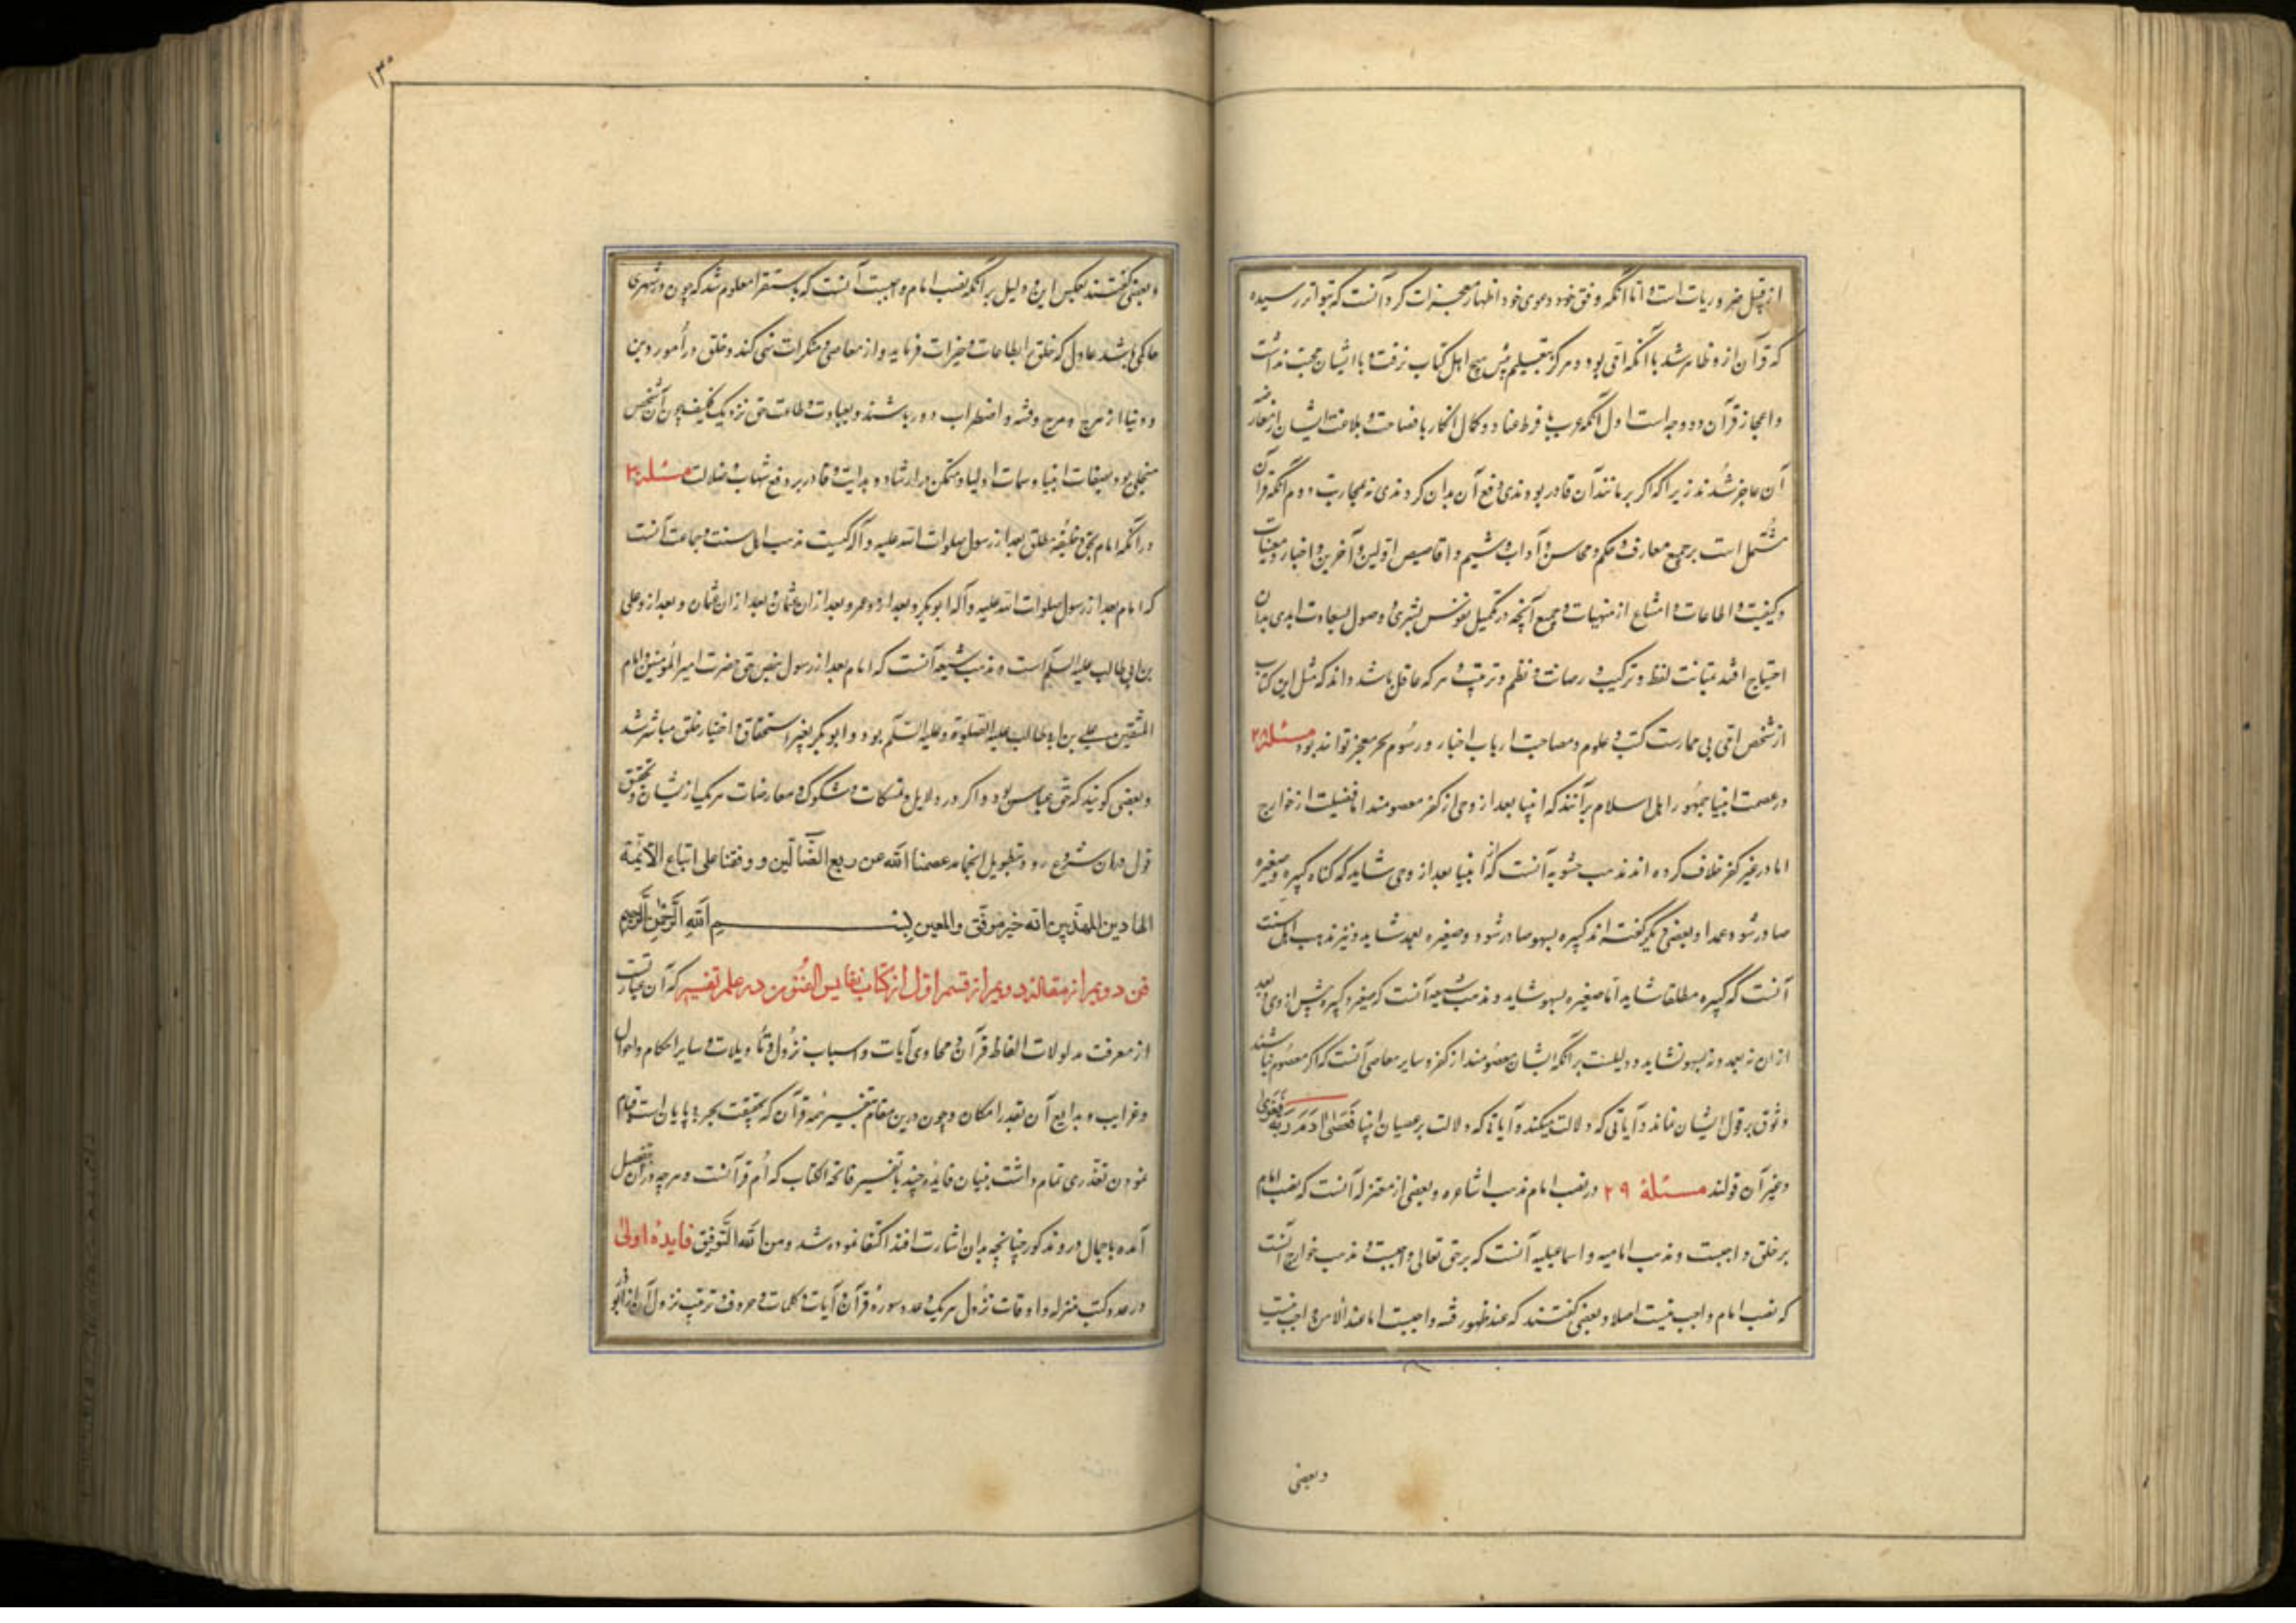 از قبیل ضروریات است و اما آنکه وفق خود دعوی خود اظهار معجزات کرد آنست که بتواتر رسیده
که قرآن ازو ظاهر شد با آنکه امی بود و هرگز بتعلیم پیش هیچ اهل کتاب نرفت و با ایشان صحبت نداشت
و اعجاز قرآن دو وجه است اول آنکه عرب با فرط عناد و کمال انکار با فصاحت و بلاغت ایشان از معارضه
آن عاجز شدند زیرا که اگر بر مانند آن قادر بودندی دفع آن بدان کردندی نه بمحاربت دوم آنکه قرآن
مشتمل است بر جمیع معارف و حکم و محاسن و آداب و شیم و اقاصیص اولین و آخرین و اخبار و مغیبات
و کیفیت و اطاعات و امتناع از منهیات و جمیع آنچه در تکمیل نفوس بشری و وصول بسعادت ابدی بدان
احتیاج افتد بمتانت لفظ و ترکیب و رصانت و نظم و ترتیب و هر که عاقل باشد داند که مثل این کتاب
از شخص امی بی ممارست کتب و علوم و مصاحبت ارباب اخبار و رسوم بجز معجز تواند بود مسئلة ٢٨
در عصمت انبیا جمهور اهل اسلام برآنند که انبیا بعد از وحی از کفر معصومند اما فضیلت از خوارج
اما در غیر کفر خلاف کرده اند مذهب حشویه آنست که از انبیا بعد از وحی شاید که گناه کبیره و صغیره
صادر شود عمدا و بعضی دیگر گفته اند کبیره بسهو صادر شود و صغیره بعمد شاید و نیز مذهب اهل سنت
آنست که کبیره مطلقا نشاید اما صغیره بسهو شاید و مذهب شیعه آنست که صغیره و کبیره پیش از وحی و بعد
ازان نه بعمد و نه بسهو نشاید و دلیلست برآنکه ایشان معصومند از کفر و سایر معاصی آنست که اگر معصوم نباشند
وثوق بر قول ایشان نماند و آیاتی که دلالت میکند و آیاتی که دلالت بر عصیان انبیا فعصی آدم ربه فغوی
و غیر آن قولند مسئلة ٢٩ در نصب امام مذهب اشاعره و بعضی از معتزله آنست که نصب امام
بر خلق واجبست و مذهب امامیه و اسماعیلیه آنست که بر حق تعالی واجبست و مذهب خوارج آنست
که نصب امام واجب نیست اصلا و بعضی گفتند که عند ظهور فتنه واجبست اما عند الامن واجب نیست
و بعضی
١٣٠
و بعضی گفتند بعکس این و دلیل بر آنکه نصب امام واجبست آنست که باستقرا معلوم شد که چون در شهری
حاکمی باشد عادل که خلق را بطاعات و خیرات فرماید و از معاصی و منکرات نهی کند و خلق در امور دین
و دنیا از هرج و مرج و فتنه و اضطراب دور باشند و بعبادت و طاعت حق نزدیک فکیف چون آن شخص
متحلی بود بصفات انبیا و سمات اولیا و متمکن در ارشاد و هدایت و قادر بر دفع شبهات و ضلالت مسئلة ٣٠
در آنکه امام بحق و خلیفه مطلق بعد از رسول صلوات الله علیه و آله کیست مذهب اهل سنت و جماعت آنست
که امام بعد از رسول صلوات الله علیه و آله ابوبکر و بعد ازو عمر و بعد ازان عثمان و بعد ازان عثمان و بعد ازو علی
بن ابی طالب علیه السلم است و مذهب شیعه آنست که امام بعد از رسول بنص حق حضرت امیر المؤمنین و امام
المتقین علی بن ابی طالب علیه الصلوة و علیه السلم بود و ابوبکر بغیر استحقاق و اختیار خلق مباشر شد
و بعضی گویند که حق عباس بود و اگر در دلایل و تمسکات و شکوک و معارضات هر یک از ایشان و تحقیق
قول دران شروع رود بتطویل انجامد عصمنا الله عن زیغ الضالین و وفقنا علی اتباع الائمة
الهادین المهتدین انه خیر موفق و المعین بسم الله الرحمن الرحیم
فن دویم از مقالة دویم از قسم اول از کتاب نفایس الفنون در علم تفسیر که آن عبارتست
از معرفت مدلولات الفاظ قرآن و محاوی آیات و اسباب نزول و تأویلات و سایر احکام و احوال
و غرایب و بدایع آن بقدر امکان و چون درین مقام تفسیر همه قرآن که بحقیقت بحر بی پایان است قیام
نمودن تعذری تمام داشت به بیان فایده چند با تفسیر فاتحة الکتاب که ام قرآنست و هرچه در آن بتفصیل
آمده باجمال درو مذکور چنانچه بدان اشارت افتد اکتفا نموده شد و من الله التوفیق فایدۀ اولی
در عدد کتب منزله و اوقات نزول هر یک و عدد سوره قرآن و آیات و کلمات و حروف و ترتیب نزول آن از ابو